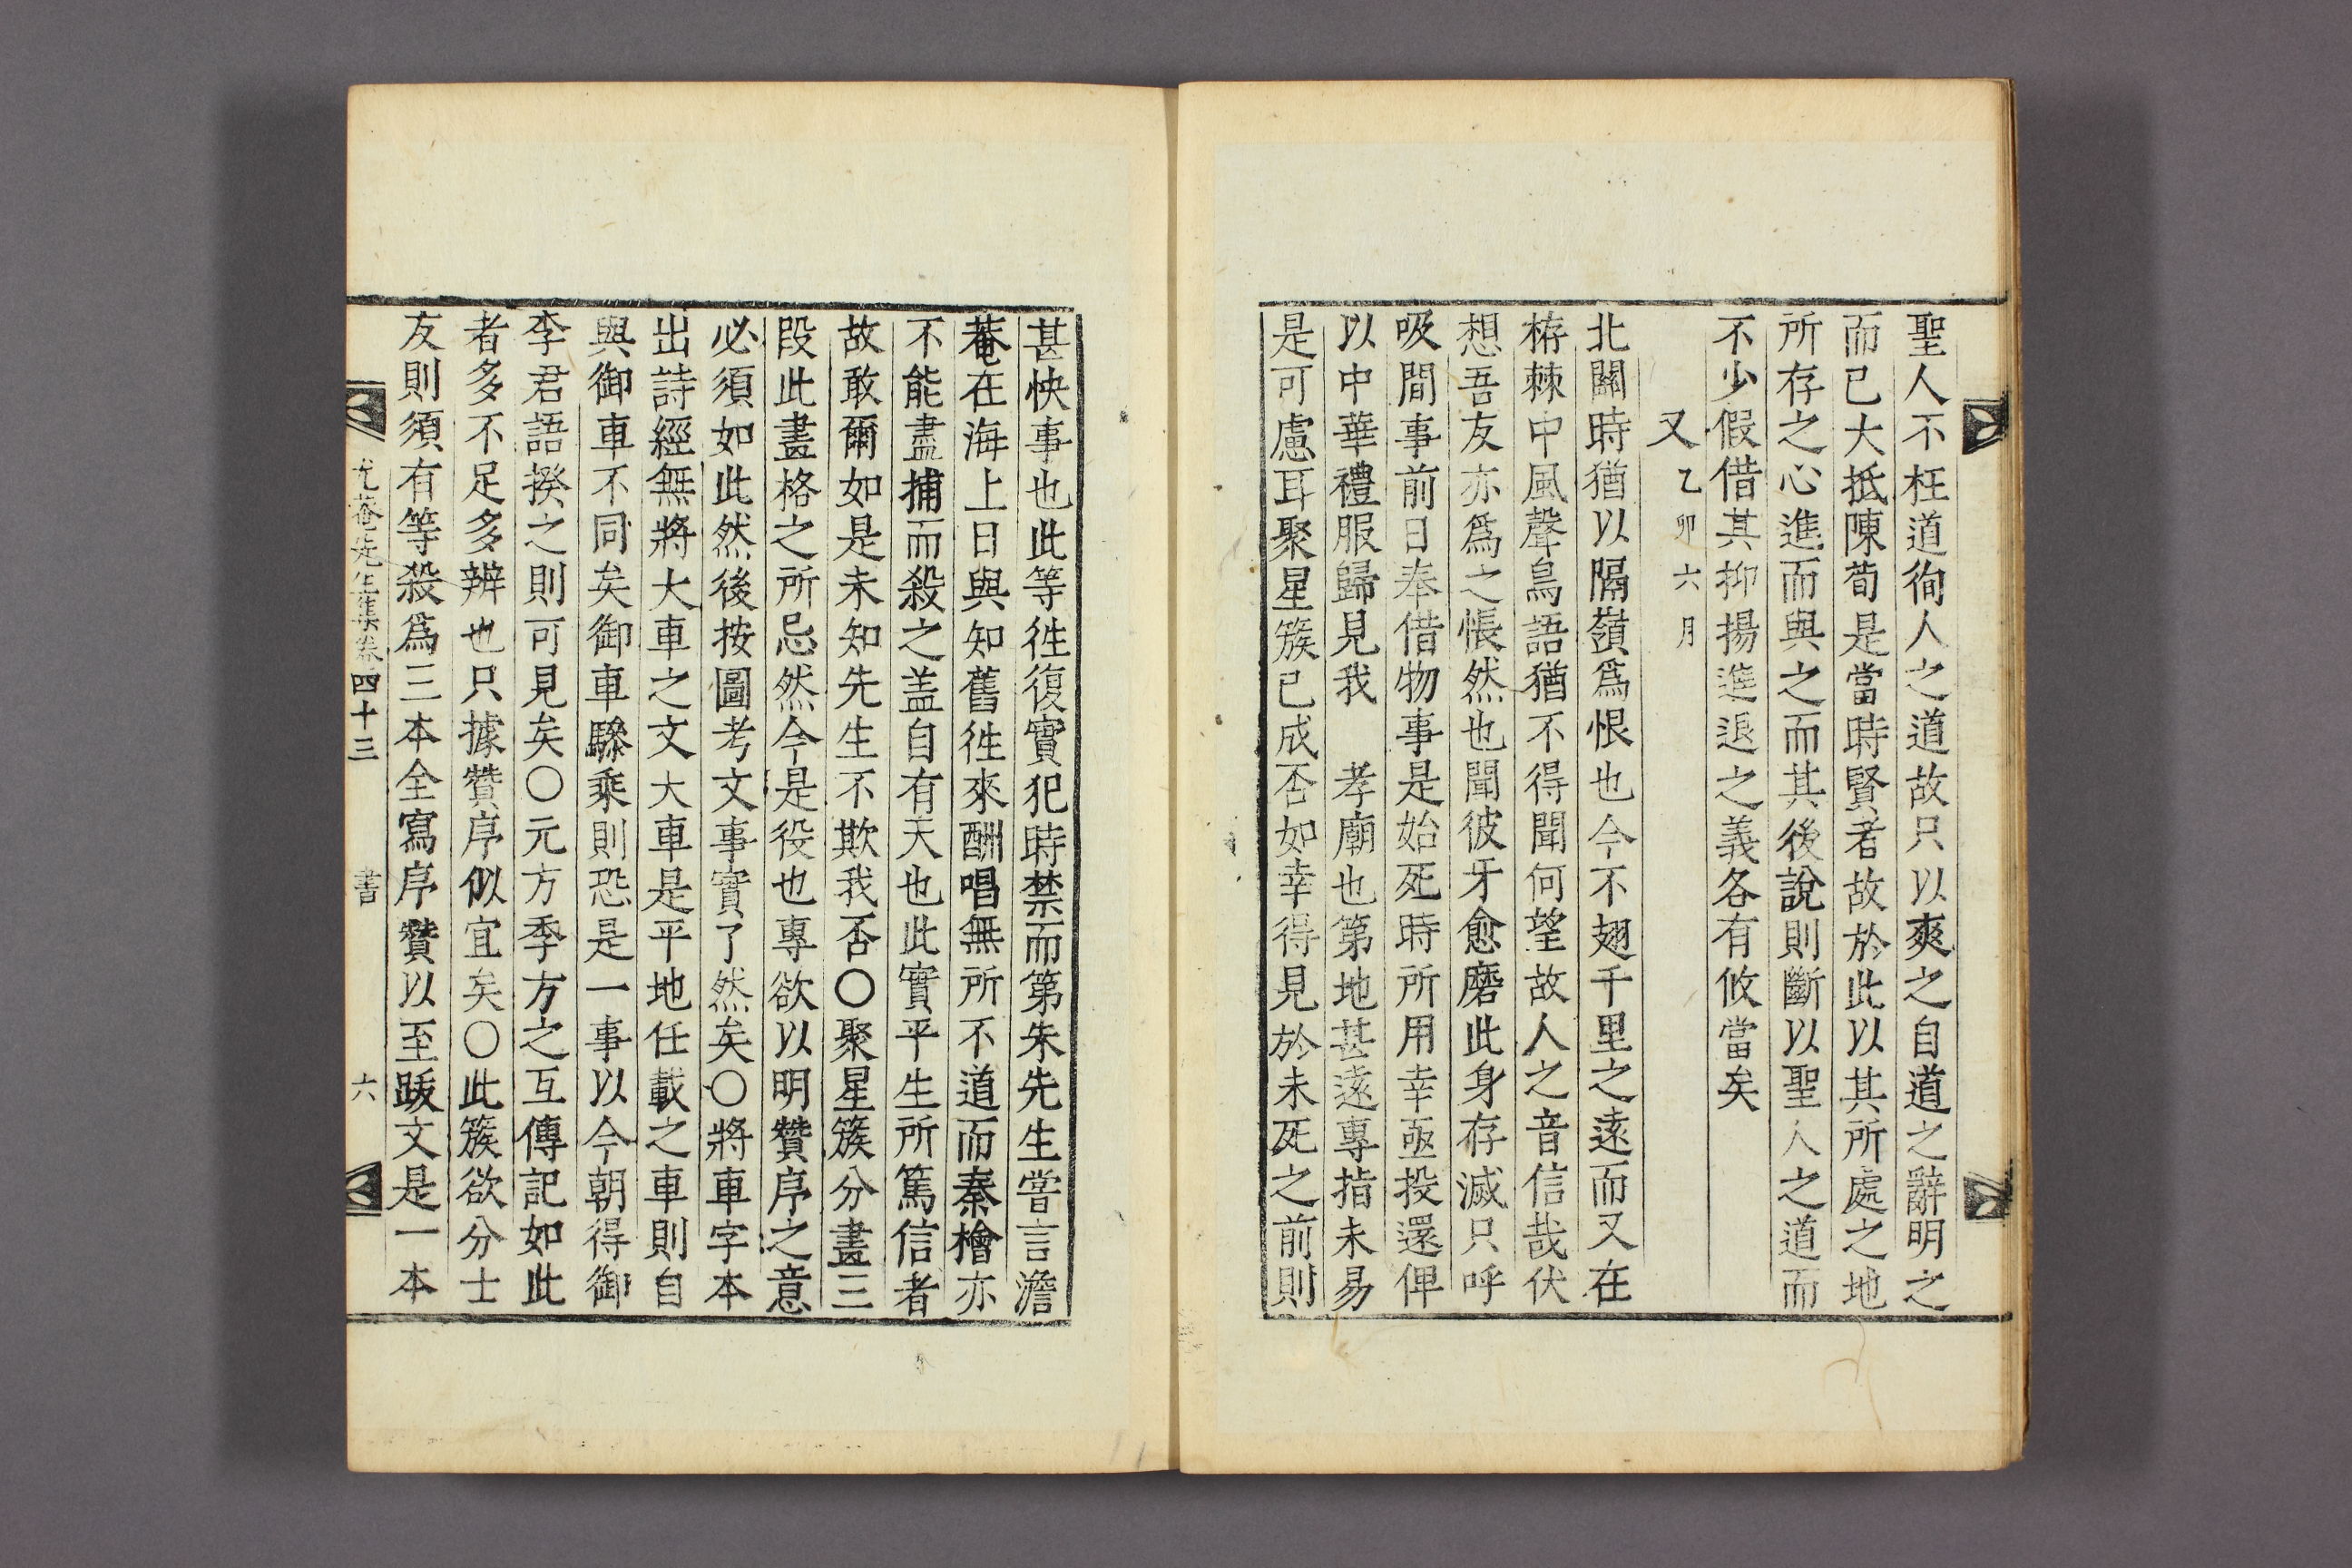 聖人不枉道徇人之道故只以爽之自道之辭明之
而已大抵陳荀是當時賢者故於此以其所處之地
所存之心進而與之而其後說則斷以聖人之道而
不少假借其抑揚進退之義各有攸當矣
又 乙卯六月
北關時猶以隔嶺爲恨也今不翅千里之遠而又在
栫棘中風聲鳥語猶不得聞何望故人之音信哉伏
想吾友亦爲之悵然也聞彼牙愈磨此身存滅只呼
吸間事前日奉借物事是始死時所用幸亟投還俾
以中華禮服歸見我 孝廟也第地甚遠專指未易
是可慮耳聚星簇已成否如幸得見於未死之前則
甚快事也此等徃復實犯時禁而第朱先生嘗言澹
菴在海上日與知舊徃來酬唱無所不道而秦檜亦
不能盡捕而殺之盖自有天也此實平生所篤信者
故敢爾如是未知先生不欺我否〇聚星簇分畫三
段此畫格之所忌然今是役也專欲以明贊序之意
必須如此然後按圖考文事實了然矣〇將車字本
出詩經無將大車之文大車是平地任載之車則自
與御車不同矣御車驂乘則恐是一事以今朝得御
李君語揆之則可見矣〇元方季方之互傳記如此
者多不足多辨也只據贊序似宜矣〇此簇欲分士
友則須有等殺爲三本全寫序贊以至跋文是一本
尤菴先生集卷四十三 書 六